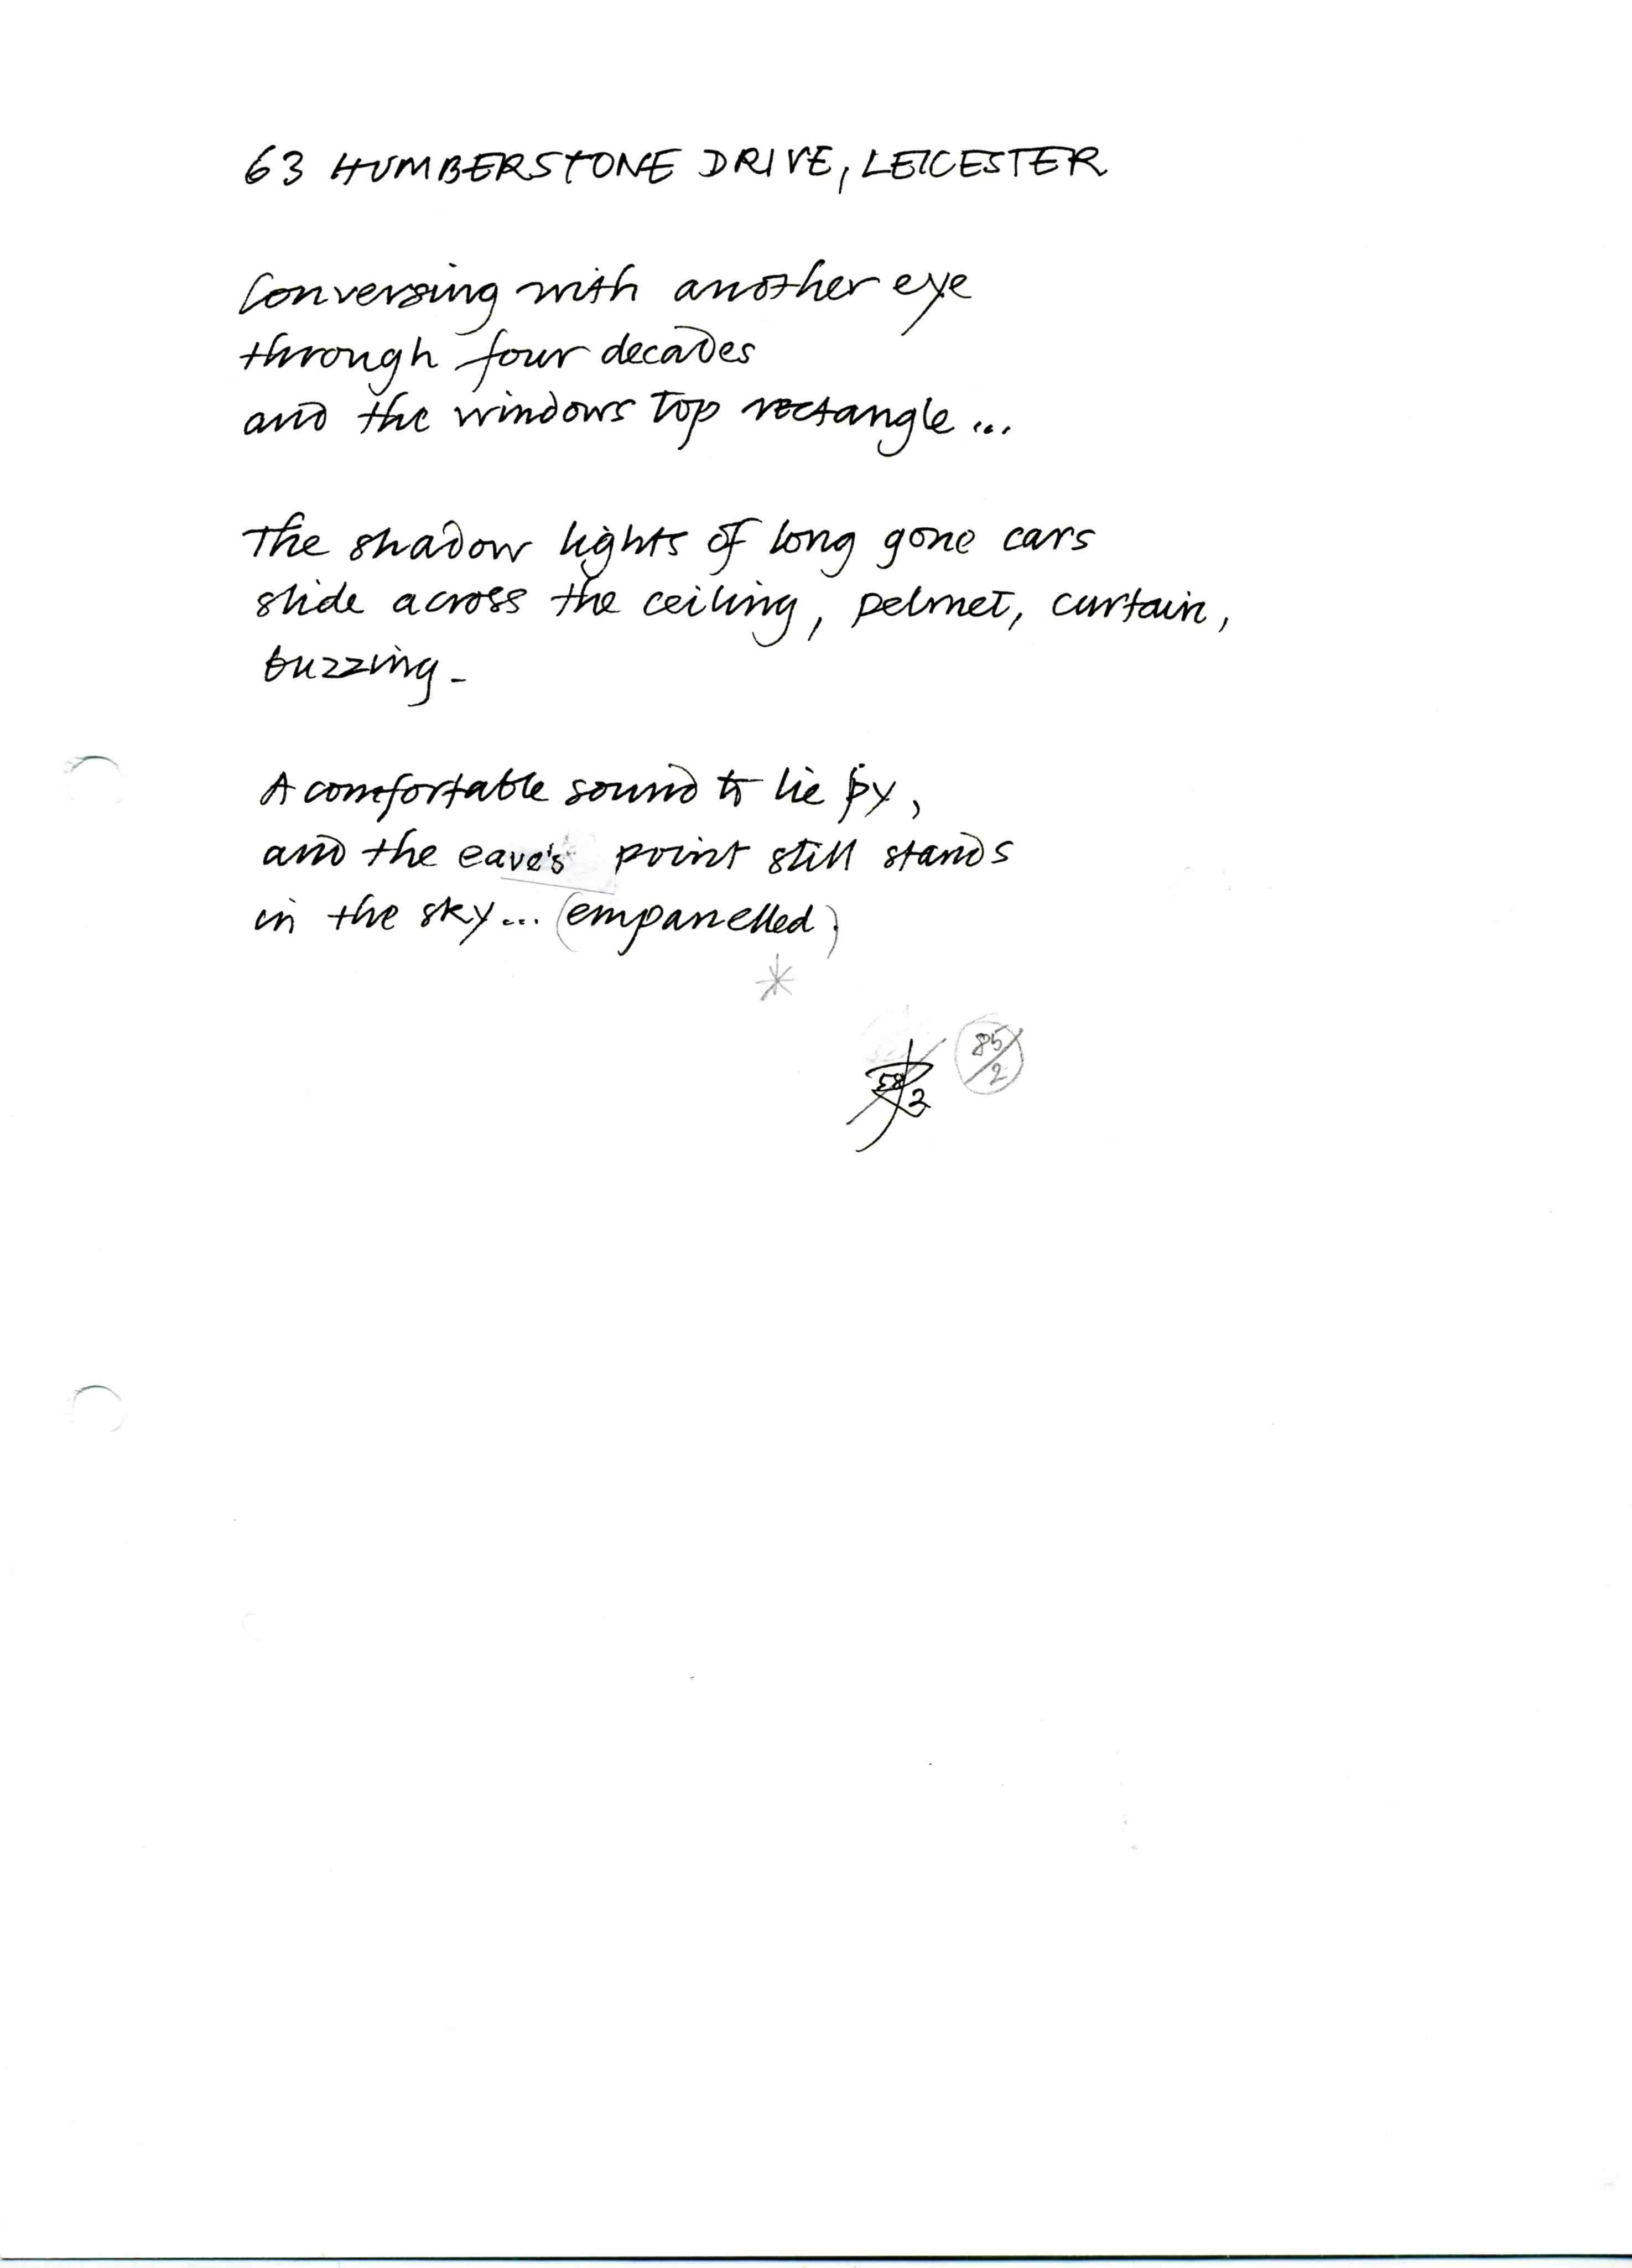 63 HUMBERSTONE DRIVE, LEICESTER
Conversing with another eye
through four decades
and the windows top rectangle...
The shadow lights of long gone cars
slide across the ceiling, pelmet, curtain,
buzzing.
A comfortable sound to lie by,
and the eave's point still stands
in the sky... (empanelled)
*
85/2